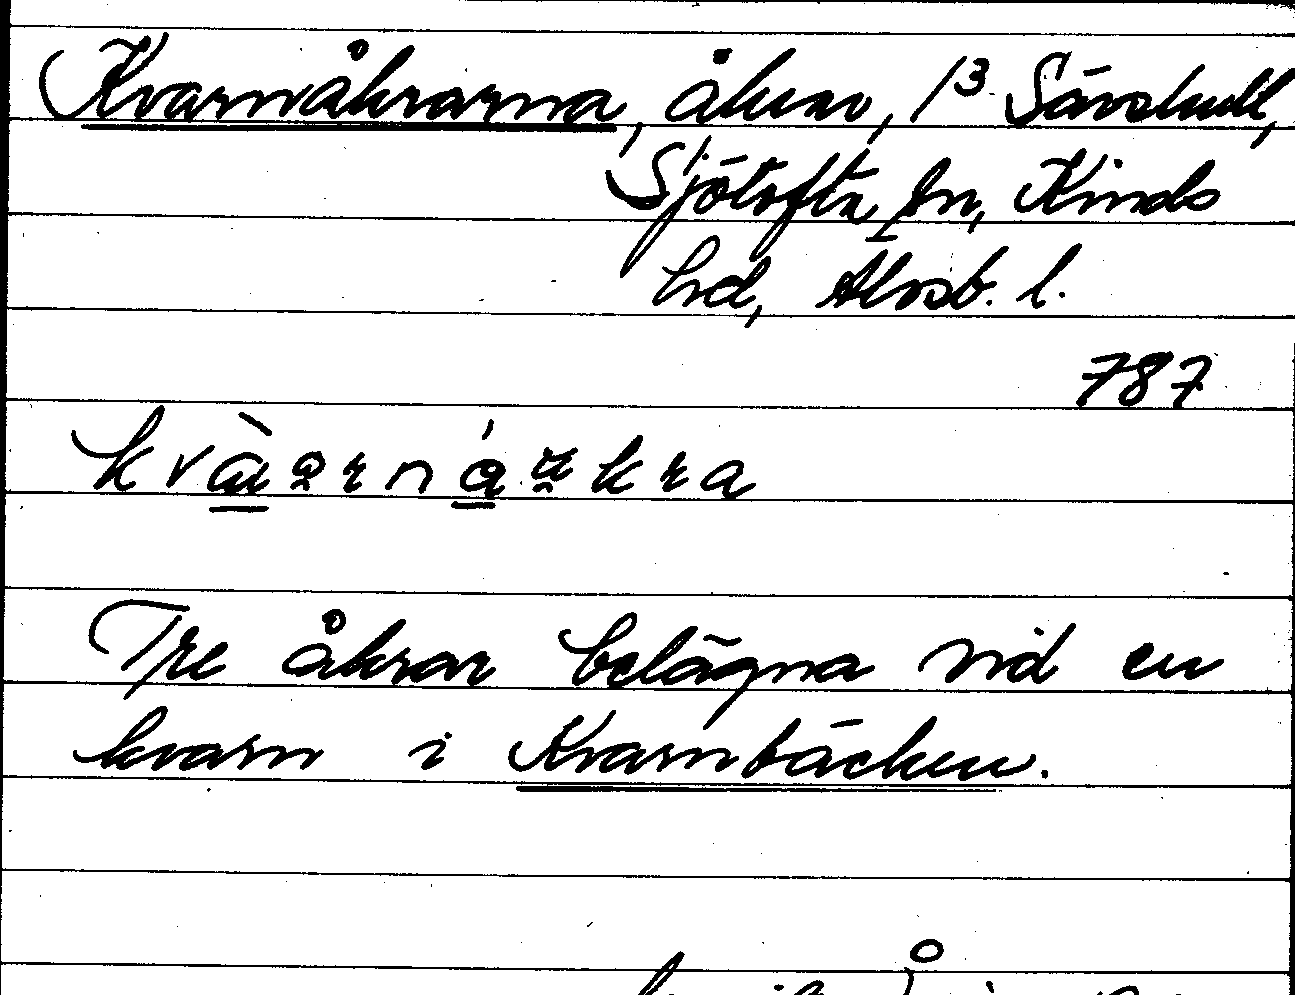 Kvarnåkrarna, åkrar, 1³ Sävshult,
Sjötofta sn, Kinds
hd, Älvsb. l.
787
Tre åkrar belägna vid en
kvarn i Kvarnbäcken.